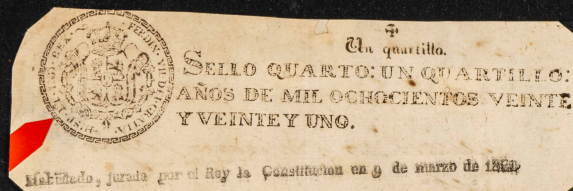 FERDIN. VII. D. G. HISP. ET IND. REX.
Un quartillo.
SELLO QUARTO: UN QUARTILLO:
AÑOS DE MIL OCHOCIENTOS VEINTE
Y VEINTE Y UNO.
Habilitado, jurada por el Rey la Constitucion en 9 de marzo de